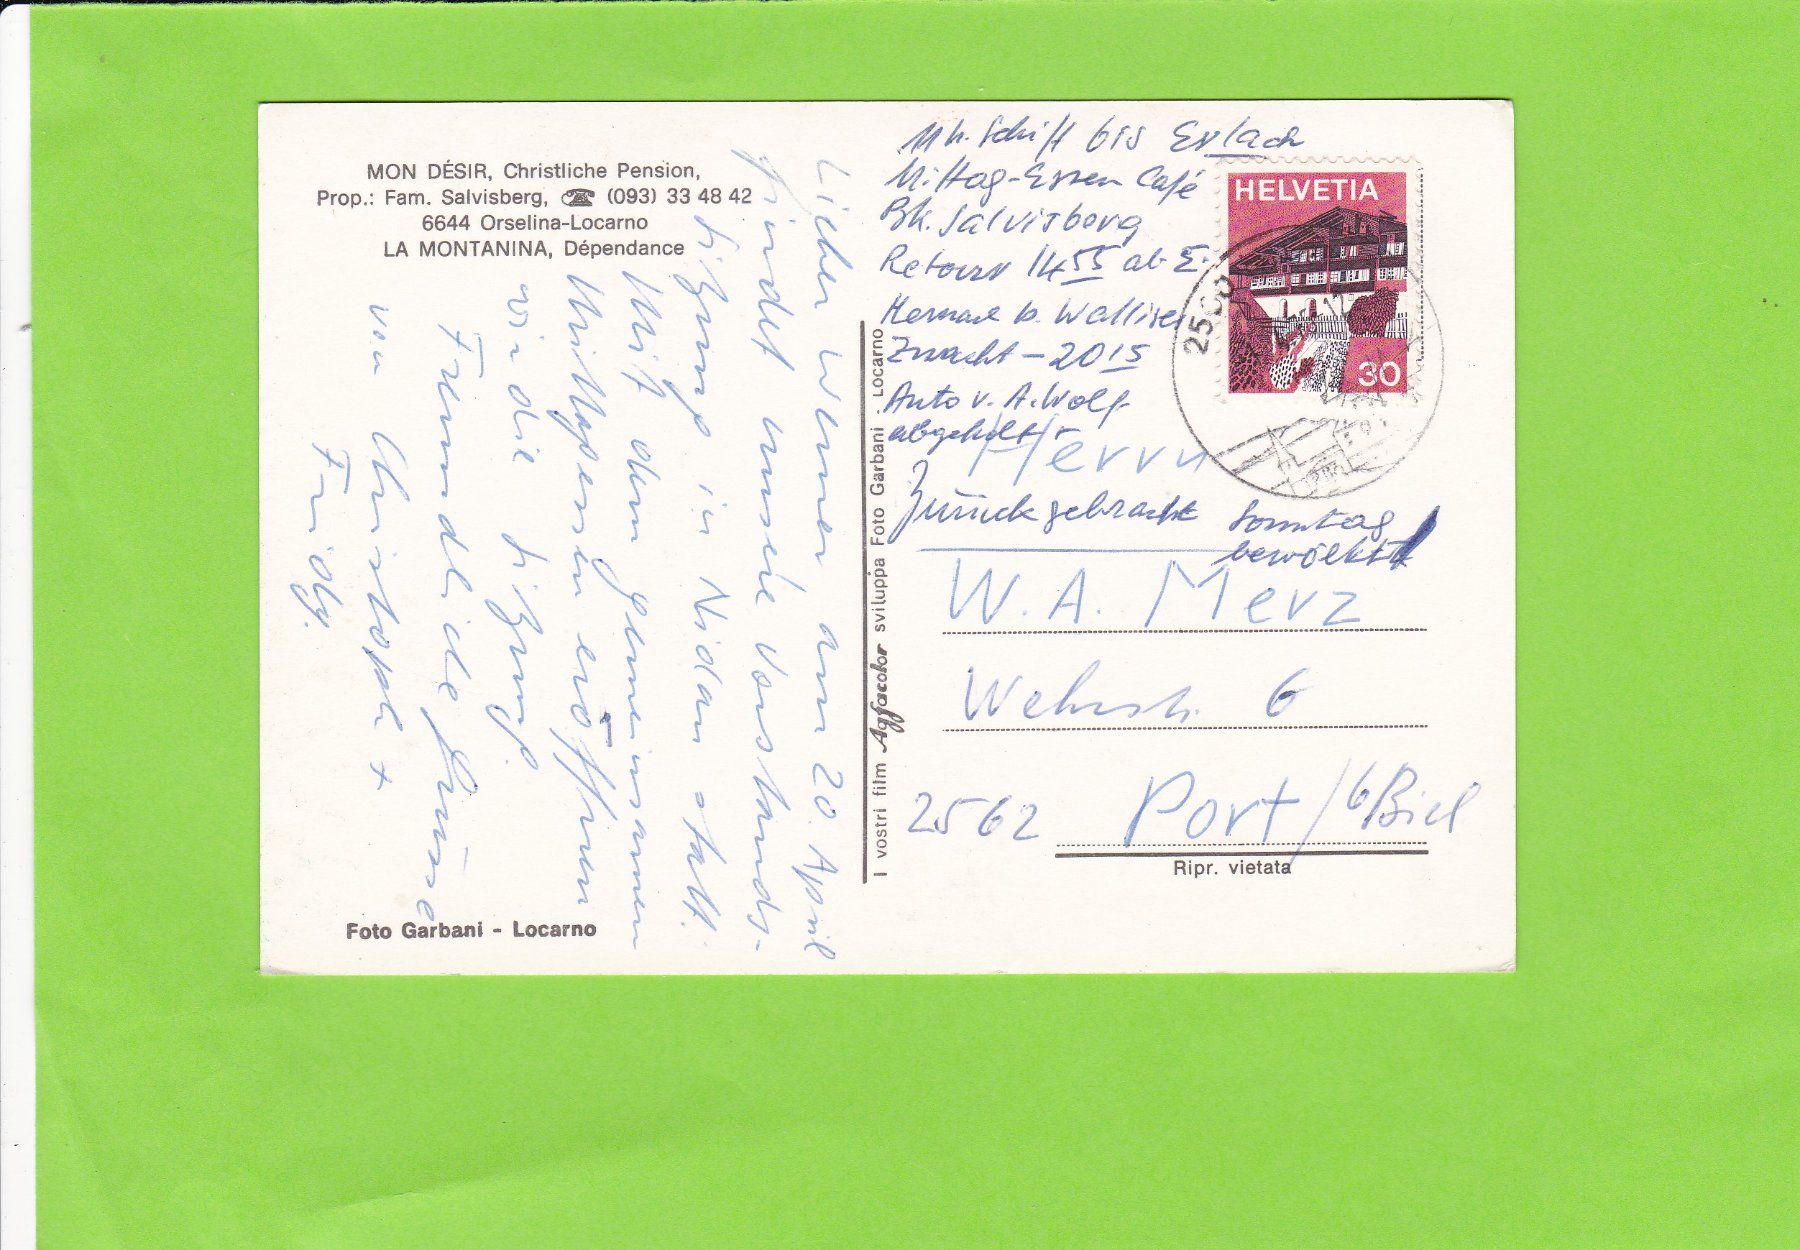 MON DÉSIR, Christliche Pension,
Prop.: Fam. Salvisberg, ☎ (093) 33 48 42
6644 Orselina-Locarno
LA MONTANINA, Dépendance
Lieber Werner am 20. April
findet unsere Vorstands-
sitzung in Nidau statt.
Mit dem gemeinsamen
Mittagessen eröffnen
wir die Sitzung.
Freundliche Grüsse
von Christoph +
Fridy.
Foto Garbani - Locarno
I vostri film Agfacolor sviluppa Foto Garbani . Locarno
11 h. Schiff bis Erlach
Mittag-Essen Café
Bk. Salvisberg
Retour 14 55 ab E.
b. Walliser
Znacht - 2015
Auto v. A. Wolf
abgeholt +
zurückgebracht Sonntag
bewölkt
HELVETIA
30
2560
Herrn
W. A. Merz
Wehrstr. 6
2562 Port / b/Biel
Ripr. vietata